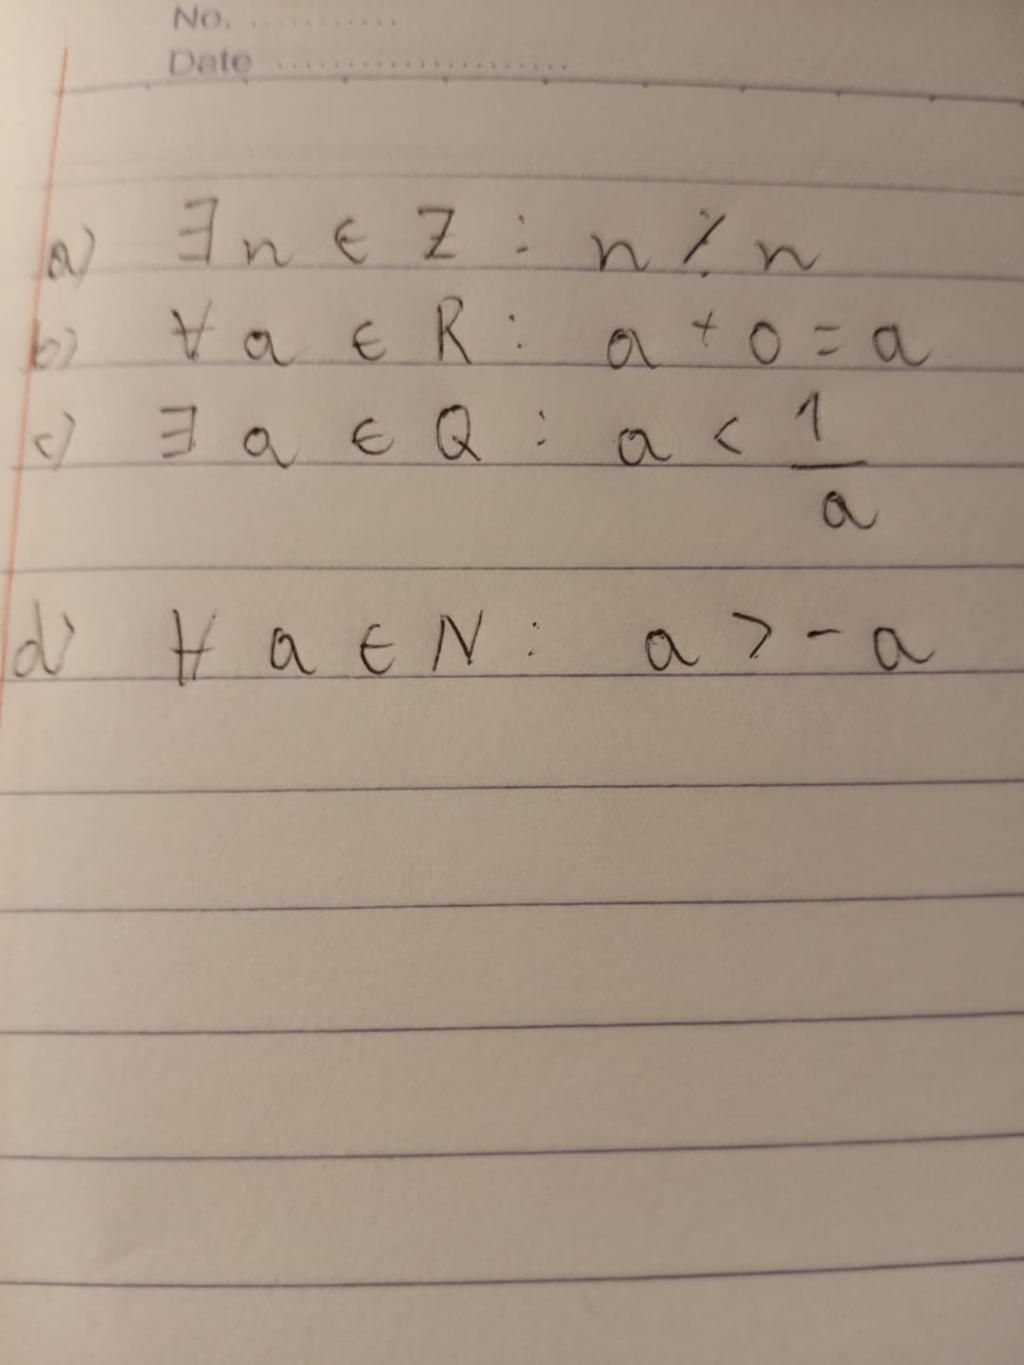 No. ...........
Date ......................
a) ∃ n ∈ Z : n ⁒ n
b) ∀ a ∈ R : a + 0 = a
c) ∃ a ∈ Q : a < 1/a
d) ∀ a ∈ N : a > - a